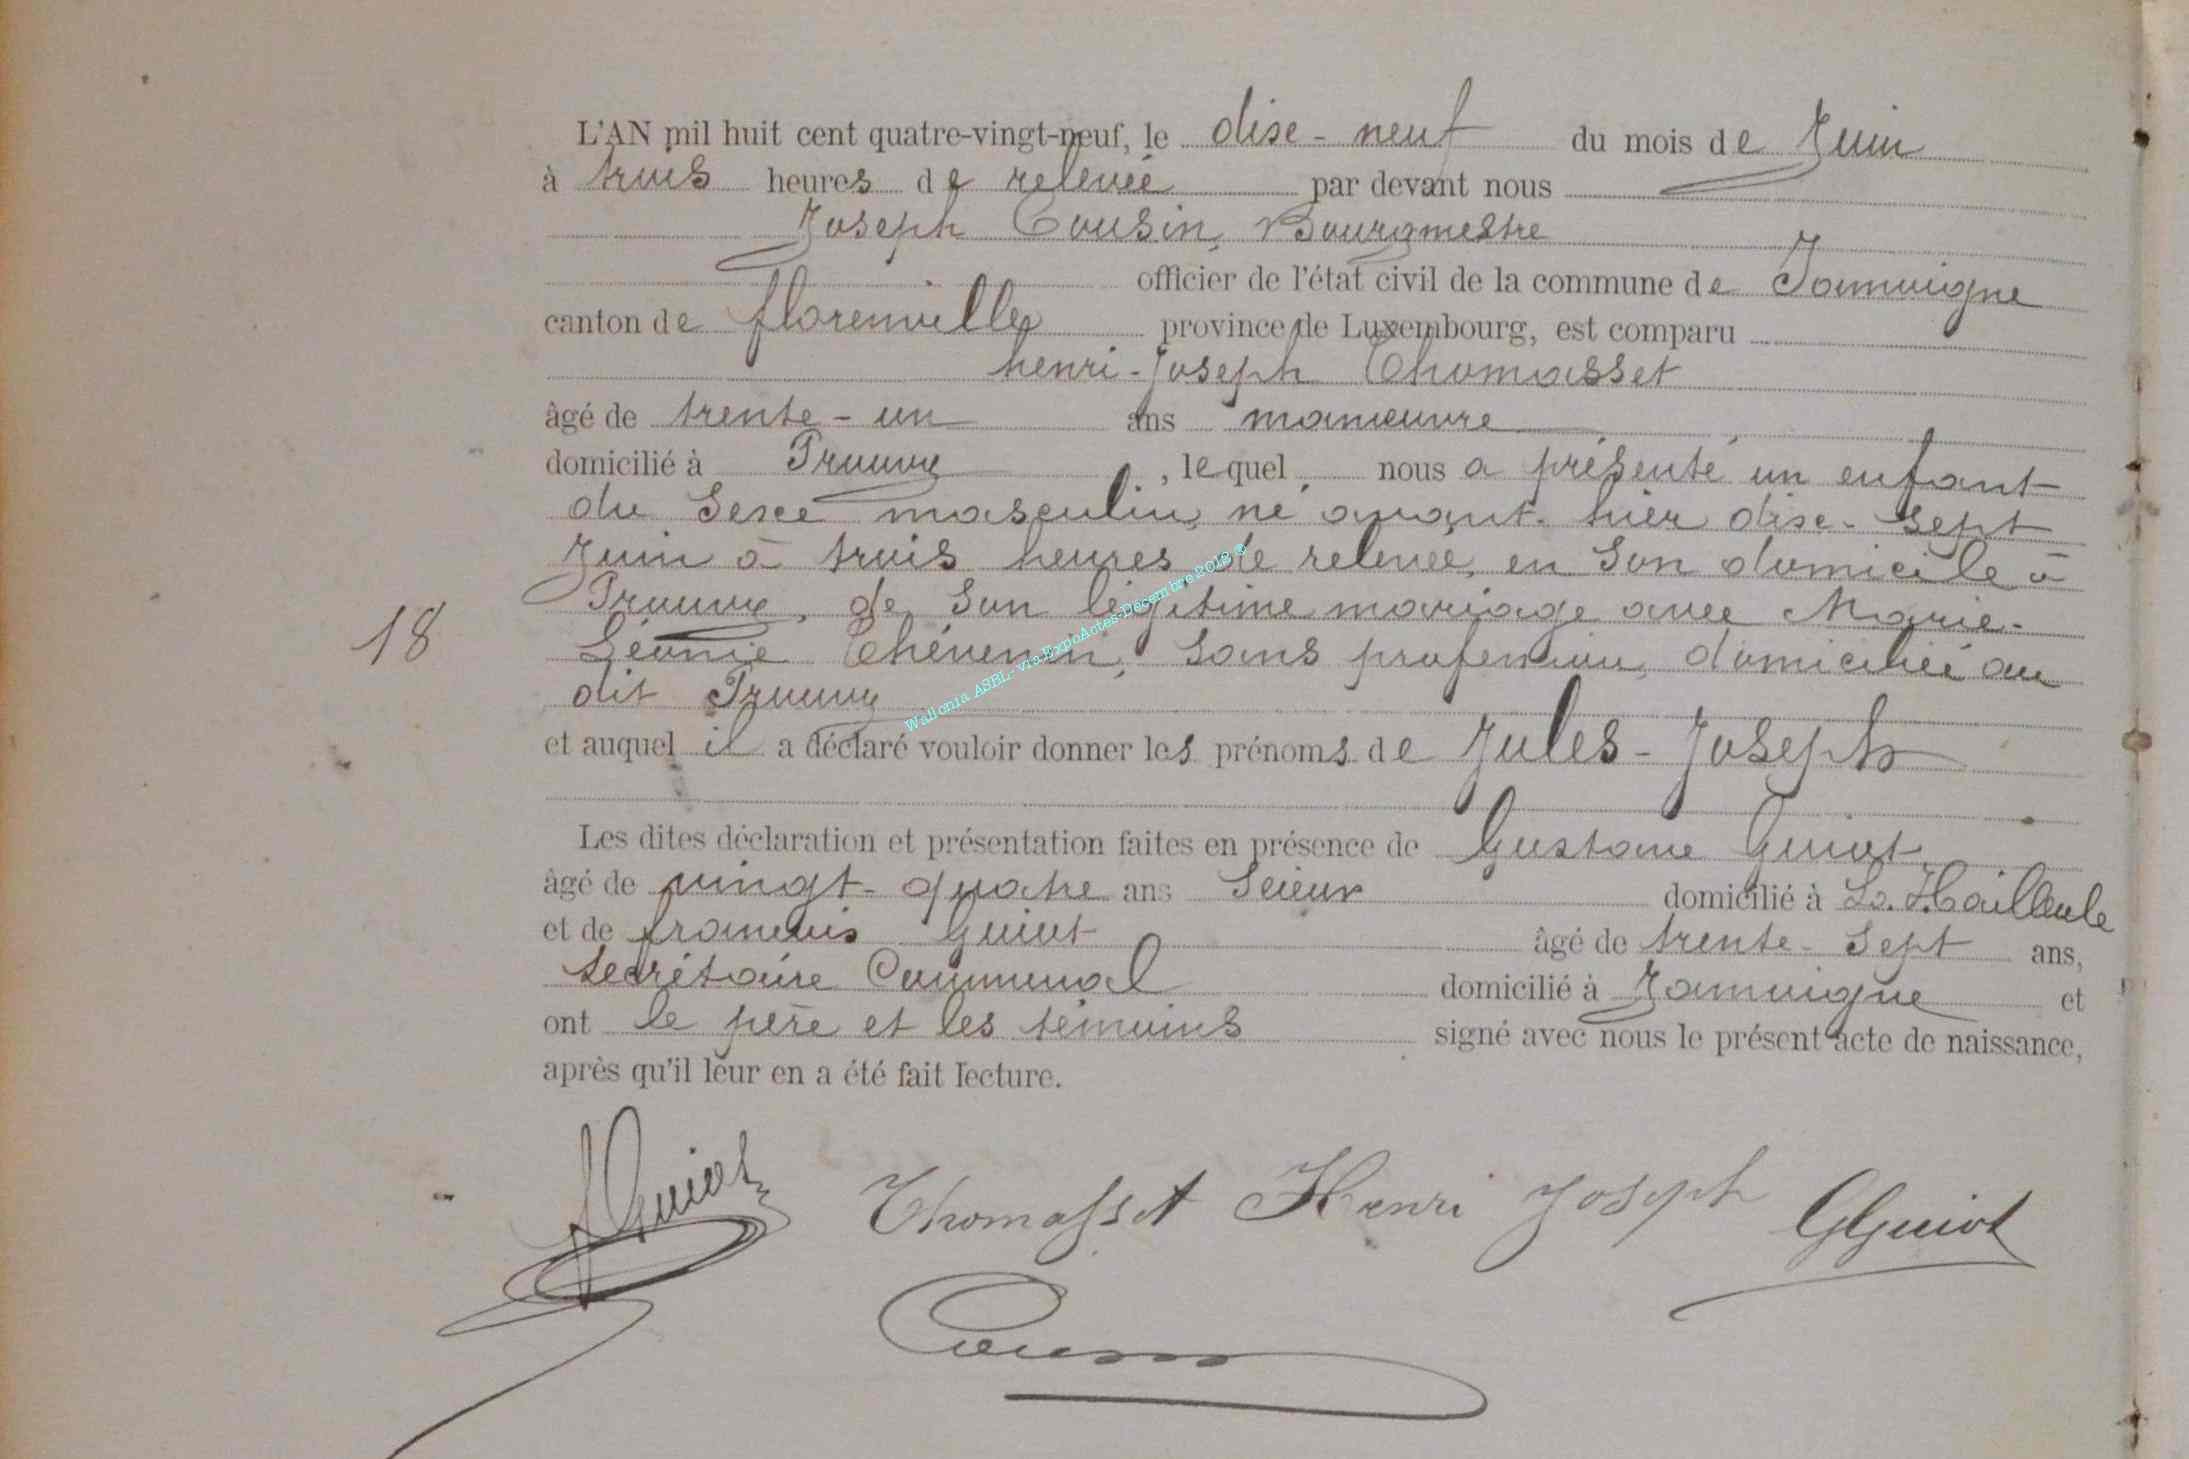 L'AN mil huit cent quatre-vingt-neuf, le dise-neuf du mois de Juin
à trois heures de relevée par devant nous
Joseph Cousin, Bourgmestre
officier de l'état civil de la commune de Jamoigne
canton de florenville province de Luxembourg, est comparu
henri-Joseph Thomasset
âgé de trente-un ans manœuvre
domicilié à Prouvy, lequel nous a présenté un enfant
du Sexe masculin, né avant-hier dise-sept
Juin à trois heures de relevée, en Son domicile à
Prouvy, de Son légitime mariage avec Marie-
Léonie Thévenin, Sans profession, domiciliée au
dit Prouvy
18
et auquel il a déclaré vouloir donner les prénoms de Jules-Joseph
Les dites déclaration et présentation faites en présence de Gustave Guiot
âgé de vingt-quatre ans Scieur domicilié à La Hailleule
et de francois Guiot âgé de trente-Sept ans,
Secrétaire Communal domicilié à Jamoigne et
ont le père et les témoins signé avec nous le présent acte de naissance,
après qu'il leur en a été fait lecture.
Wallonia ASBL - via ExpoActes-Décembre 2018 ©
FGuiot Thomasset Henri Joseph GGuiot
Cousin